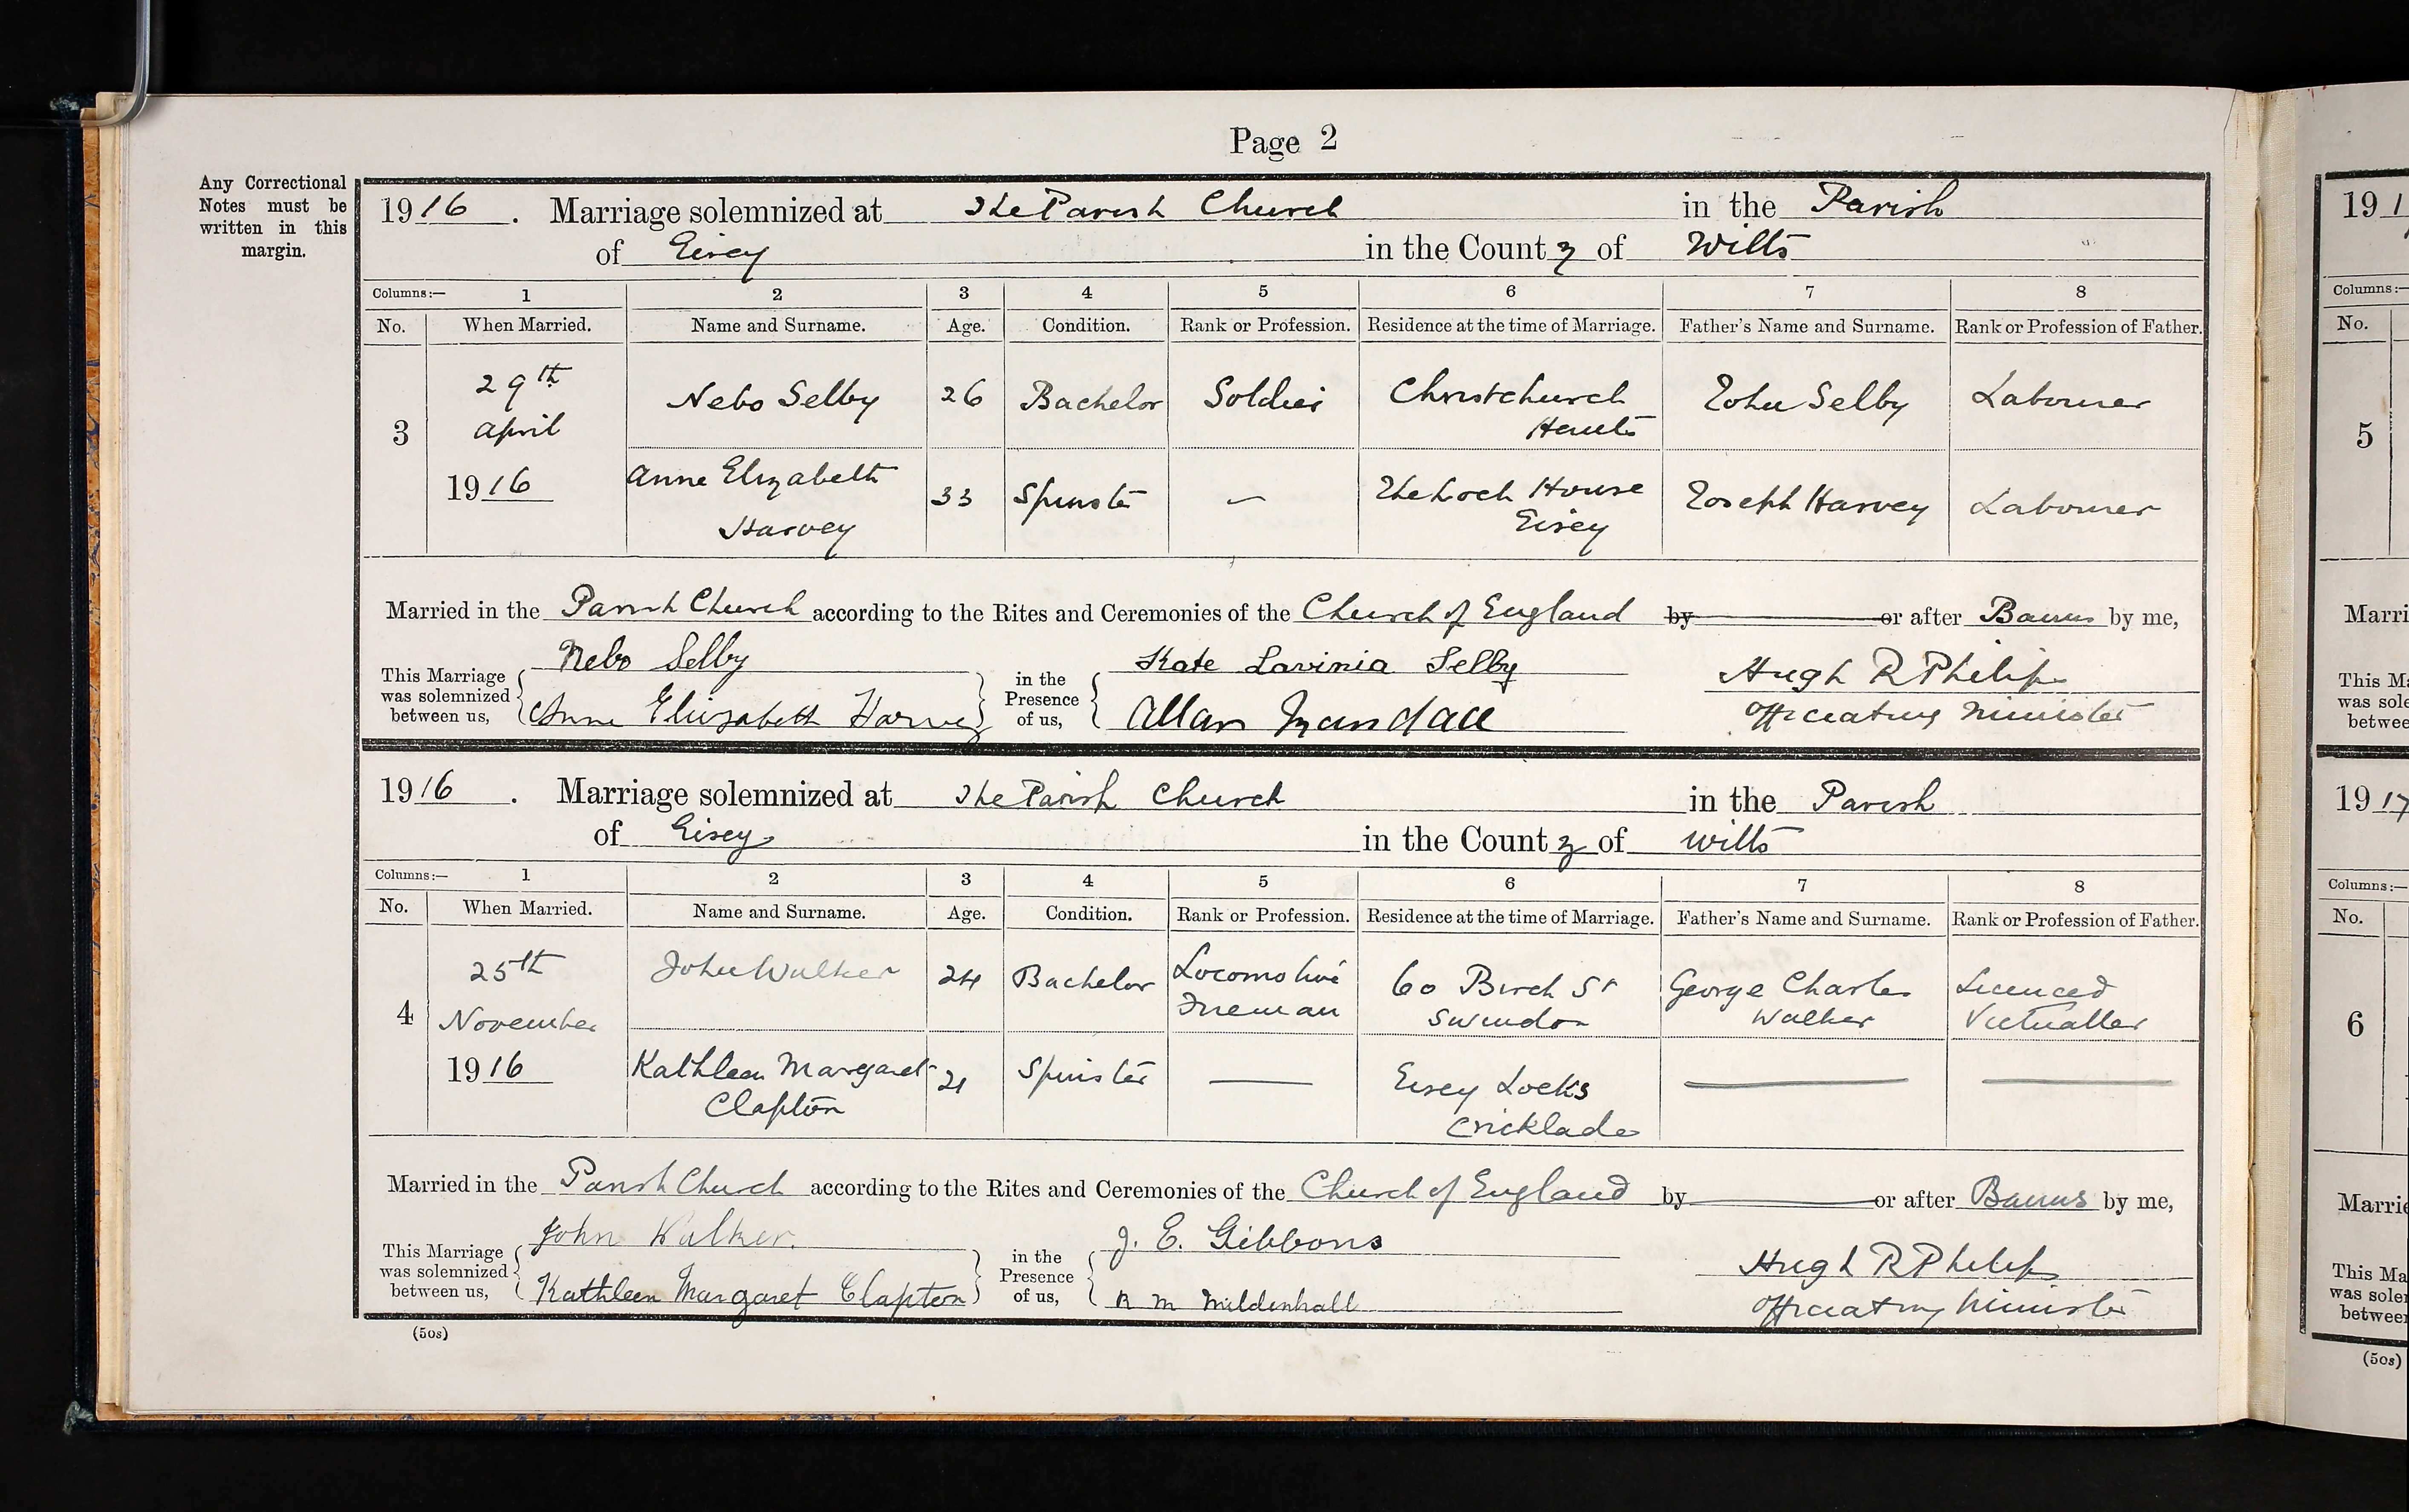 Page 2
Any Correctional
Notes must be
written in this
margin.
1916. Marriage solemnized at The Parish Church in the Parish
of Eisey in the County of Wilts
Columns:— 1 2 3 4 5 6 7 8
No. When Married. Name and Surname. Age. Condition. Rank or Profession. Residence at the time of Marriage. Father's Name and Surname. Rank or Profession of Father.
3 29th April 1916 Nebo Selby 26 Bachelor Soldier Christchurch Hants John Selby Labourer
Anne Elizabeth Harvey 33 Spinster — The Lock House Eisey Joseph Harvey Labourer
Married in the Parish Church according to the Rites and Ceremonies of the Church of England by or after Banns by me,
This Marriage was solemnized between us, Nebo Selby in the Presence of us, Kate Lavinia Selby Hugh R Philips
Anne Elizabeth Harvey Allan Officiating Minister
1916. Marriage solemnized at The Parish Church in the Parish
of Eisey in the County of Wilts
Columns:— 1 2 3 4 5 6 7 8
No. When Married. Name and Surname. Age. Condition. Rank or Profession. Residence at the time of Marriage. Father's Name and Surname. Rank or Profession of Father.
4 25th November 1916 John Walker 24 Bachelor Locomotive Fireman 60 Birch St Swindon George Charles Walker Licenced Victualler
Kathleen Margaret Clapton 21 Spinster — Eisey Locks Cricklade — —
Married in the Parish Church according to the Rites and Ceremonies of the Church of England by or after Banns by me,
This Marriage was solemnized between us, John Walker. in the Presence of us, J. E. Gibbons Hugh R Philips
Kathleen Margaret Clapton R M Mildenhall Officiating Minister
(50s)
191
Columns:—
No.
5
Marri
This Ma
was sole
betwee
1917
Columns:—
No.
6
Marrie
This Ma
was soler
between
(50s)